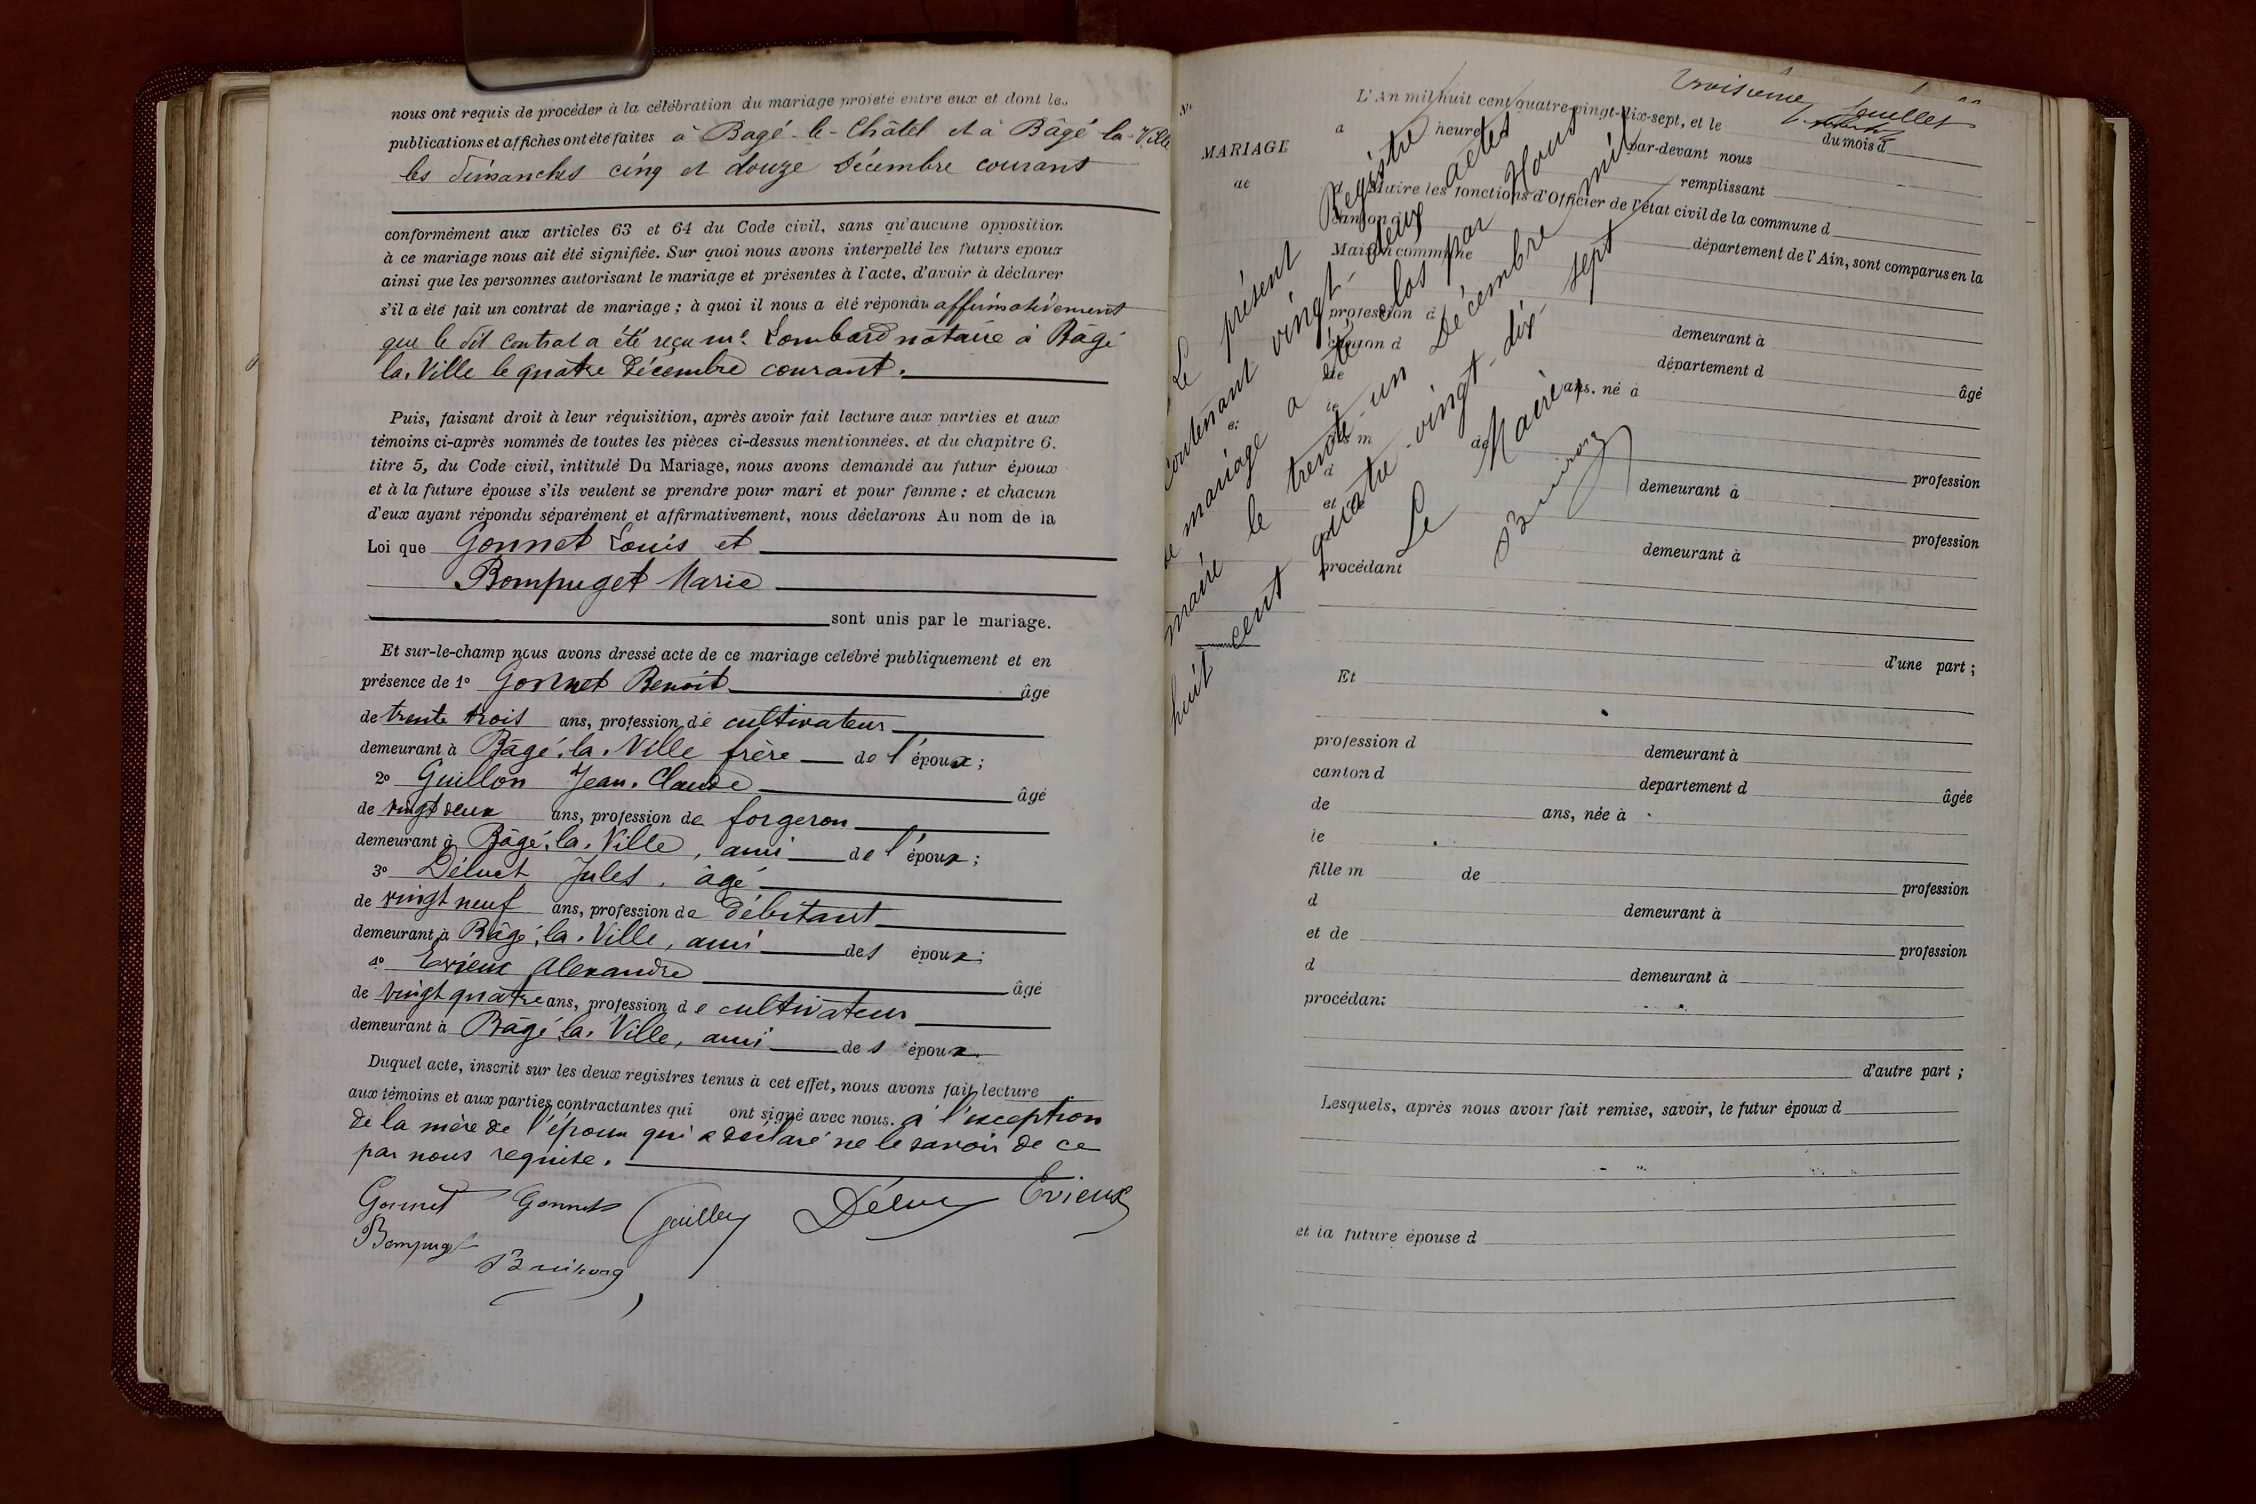 nous ont requis de procéder à la célébration du mariage projeté entre eux et dont les
publications et affiches ont été faites à Bagé-le-Châtel et à Bâgé-la-Ville
les dimanches cinq et douze Décembre courant
conformément aux articles 63 et 64 du Code civil, sans qu'aucune opposition
à ce mariage nous ait été signifiée. Sur quoi nous avons interpellé les futurs époux
ainsi que les personnes autorisant le mariage et présentes à l'acte, d'avoir à déclarer
s'il a été fait un contrat de mariage ; à quoi il nous a été répondu affirmativement
que le dit contrat a été reçu me Lombard notaire à Bâgé
la Ville le quatre Décembre courant.
Puis, faisant droit à leur réquisition, après avoir fait lecture aux parties et aux
témoins ci-après nommés de toutes les pièces ci-dessus mentionnées, et du chapitre 6,
titre 5, du Code civil, intitulé Du Mariage, nous avons demandé au futur époux
et à la future épouse s'ils veulent se prendre pour mari et pour femme ; et chacun
d'eux ayant répondu séparément et affirmativement, nous déclarons Au nom de la
Loi que Gonnet Louis et
Bompuget Marie
sont unis par le mariage.
Et sur-le-champ nous avons dressé acte de ce mariage célébré publiquement et en
présence de 1° Gonnet Benoit âgé
de trente trois ans, profession de cultivateur
demeurant à Bâgé-la-Ville frère de l'époux ;
2° Guillon Jean-Claude âgé
de vingt deux ans, profession de forgeron
demeurant à Bâgé-la-Ville, ami de l'époux ;
3° Déluet Jules, âgé
de vingt neuf ans, profession de débitant
demeurant à Bâgé-la-Ville, ami des époux ;
4° Evieux Alexandre âgé
de vingt quatre ans, profession de cultivateur
demeurant à Bâgé-la-Ville, ami des époux.
Duquel acte, inscrit sur les deux registres tenus à cet effet, nous avons fait lecture
aux témoins et aux parties contractantes qui ont signé avec nous. à l'exception
de la mère de l'époux qui a déclaré ne le savoir de ce
par nous requise.
Gonnet Gonnet Evieux
Bompuget
N°
MARIAGE
de
troisième
Juillet
L'An mil huit cent quatre-vingt-dix-sept, et le du mois d
à heure par-devant nous
remplissant
Maire les fonctions d'Officier de l'état civil de la commune d
canton d département de l'Ain, sont comparus en la
Maison commune
profession d demeurant à
canton d département d âgé
de ans, né à
le
fils m de profession
d demeurant à
et de profession
demeurant à
procédant
d'une part ;
Et
profession d demeurant à
canton d département d âgée
de ans, née à
le
fille m de profession
d demeurant à
et de profession
d demeurant à
procédant
d'autre part ;
Lesquels, après nous avoir fait remise, savoir, le futur époux d
et la future épouse d
Le présent Registre
contenant vingt-deux actes
de mariage a été clos par Nous
maire le trente-un Décembre mil
huit cent quatre-vingt-dix-sept
Le Maire,